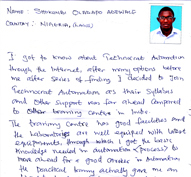 NAME: OLADAPO ADEWALE
COUNTRY: NIGERIA,
I got to know about Technocrat Automation
through the Internet, after many options before
me after series of finding I decided to join
Technocrat Automation as their Syllabus
and Other Support was far ahead compared
to other training centre in India
The training Centre has good facilities and
the Laboratories are well equipped with latest
equipments through which I got the basic
knowledge needed in automation (process) to
move ahead for a good career in Automation.
The practical training actually gave me an